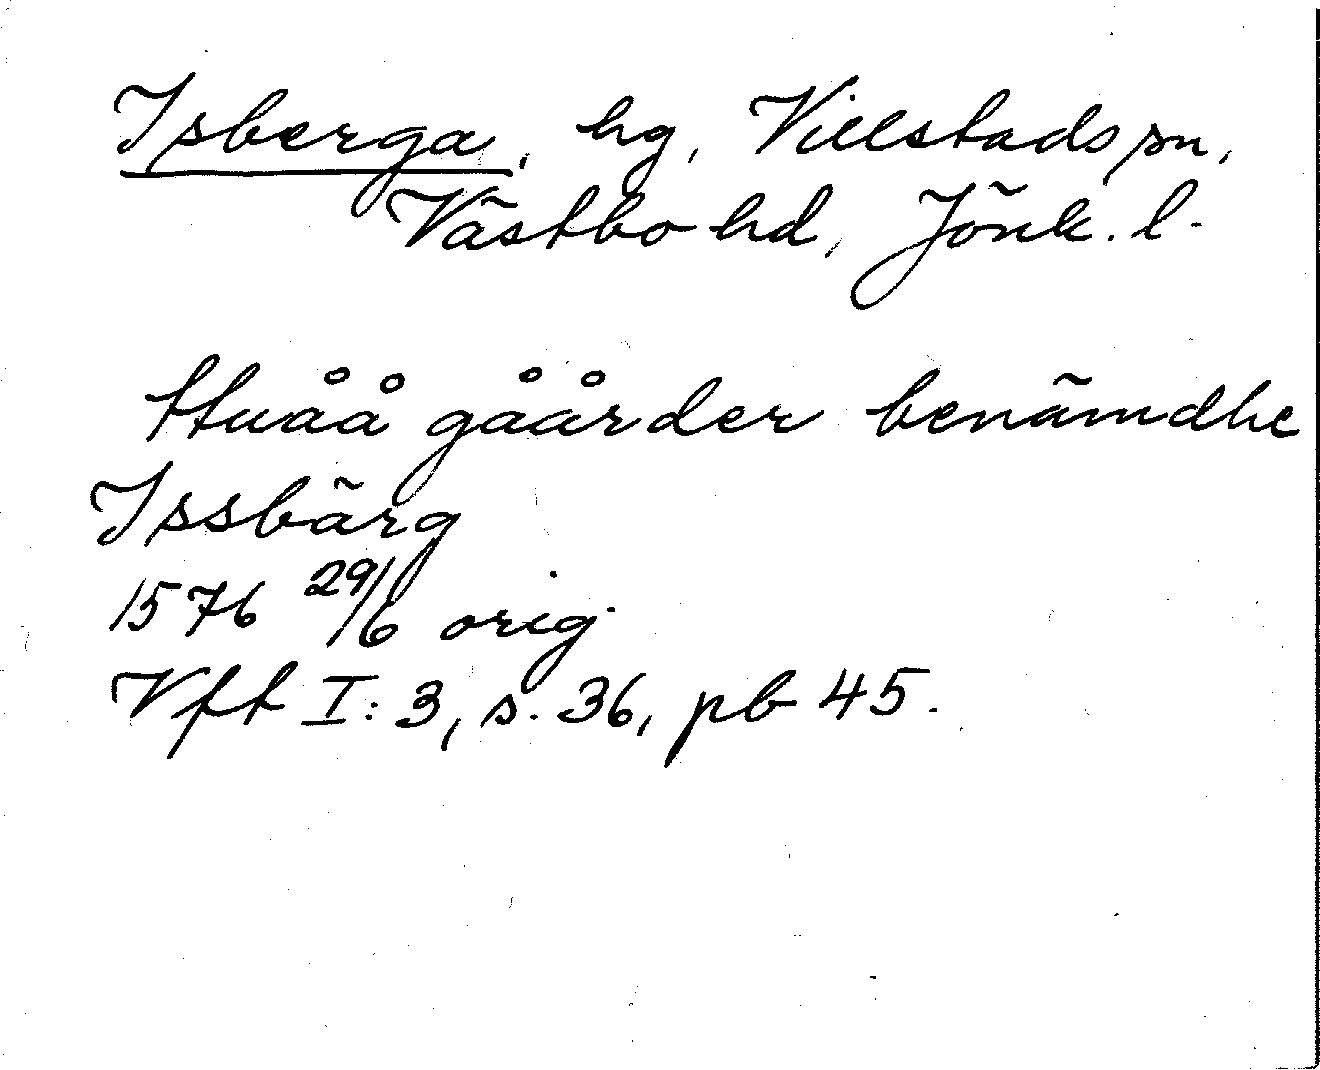 Isberga, hg, Villstads sn,
Västbo hd, Jönk. l.
ttuåå gåårder benämdhe
Issbärg
1576 29/6 orig.
Vft I:3, s. 36, pb 45.